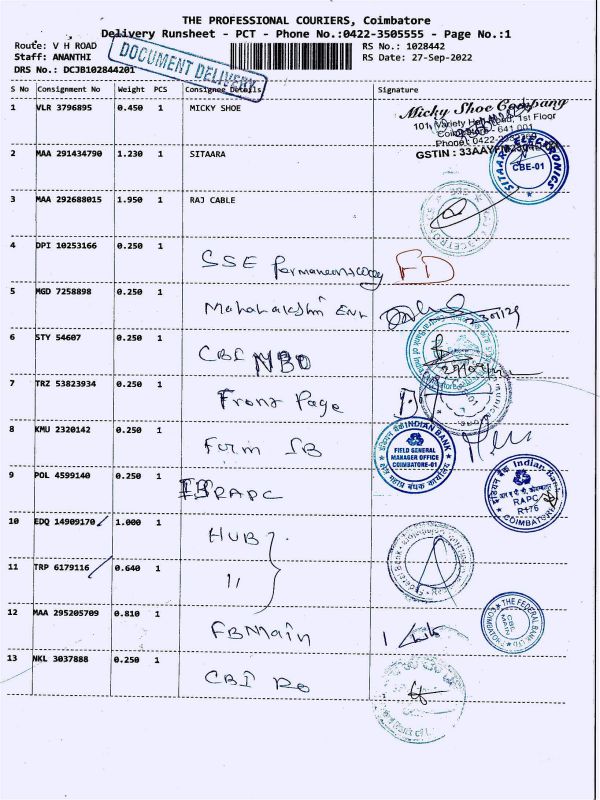 THE PROFESSIONAL COURIERS, Coimbatore
Delivery Runsheet - PCT - Phone No.:0422-3505555 - Page No.:1
Route: V H ROAD
RS No.: 1028442
Staff: ANANTHI
RS Date: 27-Sep-2022
DRS No.: DCJB102844201
DOCUMENT DELIVERY
S No Consignment No Weight PCS Consignee Details Signature
1 VLR 3796895 0.450 1 MICKY SHOE
Micky Shoe Company
101, Variety Hall Road, 1st Floor
GSTIN : 33AAYF
2 MAA 291434790 1.230 1 SITAARA
SITAARA ELECTRONICS
CBE-01
3 MAA 292688015 1.950 1 RAJ CABLE
4 DPI 10253166 0.250 1 SSE FD
5 MGD 7258898 0.250 1 Mahalakshmi Ent
6 STY 54607 0.250 1 CBI NBO
7 TRZ 53823934 0.250 1 Front Page
8 KMU 2320142 0.250 1 Firm IB
इंडियन बैंक INDIAN BANK
FIELD GENERAL
MANAGER OFFICE
COIMBATORE-01
9 POL 4599140 0.250 1 IB RAPC
इंडियन बैंक Indian Bank
RAPC
R176
COIMBATORE
10 EDQ 14909170 1.000 1 HUB
11 TRP 6179116 0.640 1 11
12 MAA 295205709 0.810 1 FB Main
THE FEDERAL BANK LTD
CBE
MAIN
13 NKL 3037888 0.250 1 CBI Ro